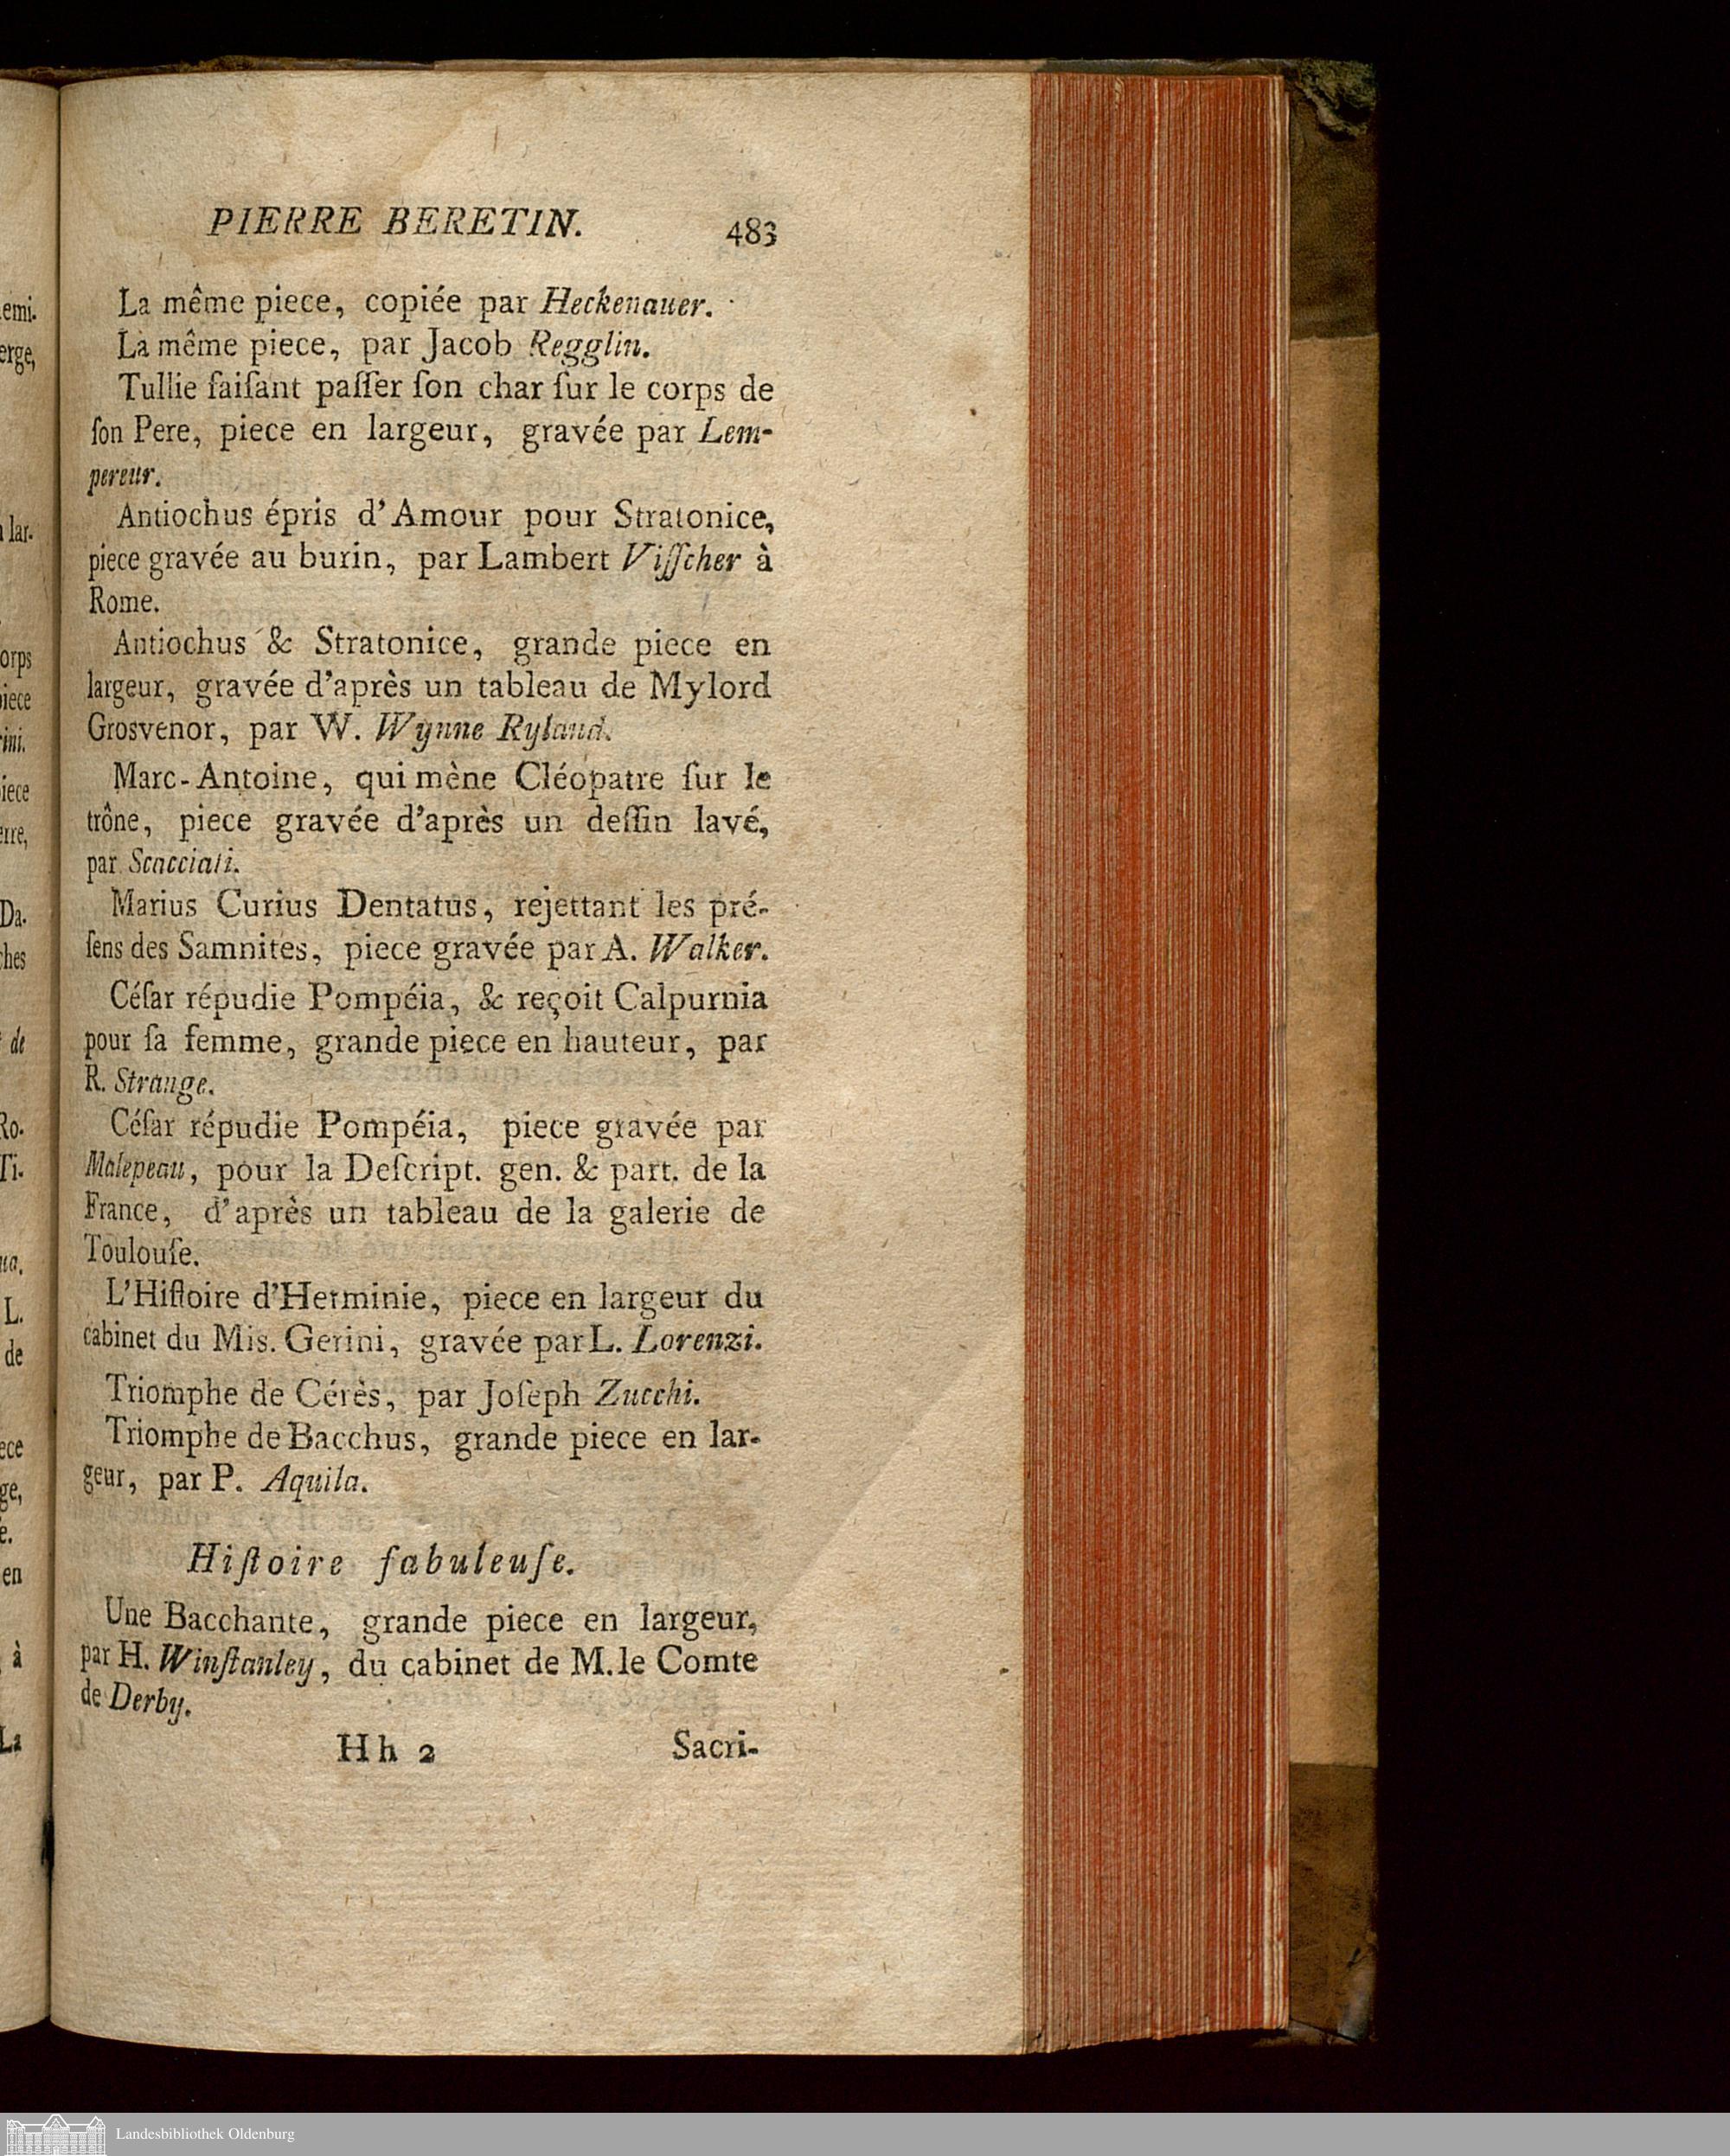 PIERRE BERETIN. 483
La même piece, copiée par Heckenauer.
La même piece, par Jacob Regglin.
Tullie faiſant paſſer ſon char ſur le corps de
ſon Pere, piece en largeur, gravée par Lem-
pereur.
Antiochus épris d'Amour pour Stratonice,
piece gravée au burin, par Lambert Viſſcher à
Rome.
Antiochus & Stratonice, grande piece en
largeur, gravée d'après un tableau de Mylord
Grosvenor, par W. Wynne Ryland.
Marc-Antoine, qui mène Cléopatre ſur le
trône, piece gravée d'après un deſſin lavé,
par Scacciati.
Marius Curius Dentatus, rejettant les pré-
ſens des Samnites, piece gravée par A. Walker.
Céſar répudie Pompéia, & reçoit Calpurnia
pour ſa femme, grande piece en hauteur, par
R. Strange.
Céſar répudie Pompéia, piece gravée par
Malepeau, pour la Deſcript. gen. & part. de la
France, d'après un tableau de la galerie de
Toulouſe.
L'Hiſtoire d'Herminie, piece en largeur du
cabinet du Mis. Gerini, gravée par L. Lorenzi.
Triomphe de Cérès, par Joſeph Zucchi.
Triomphe de Bacchus, grande piece en lar-
geur, par P. Aquila.
Hiſtoire fabuleuſe.
Une Bacchante, grande piece en largeur,
par H. Winſtanley, du cabinet de M. le Comte
de Derby.
Hh 2 Sacri-
Landesbibliothek Oldenburg